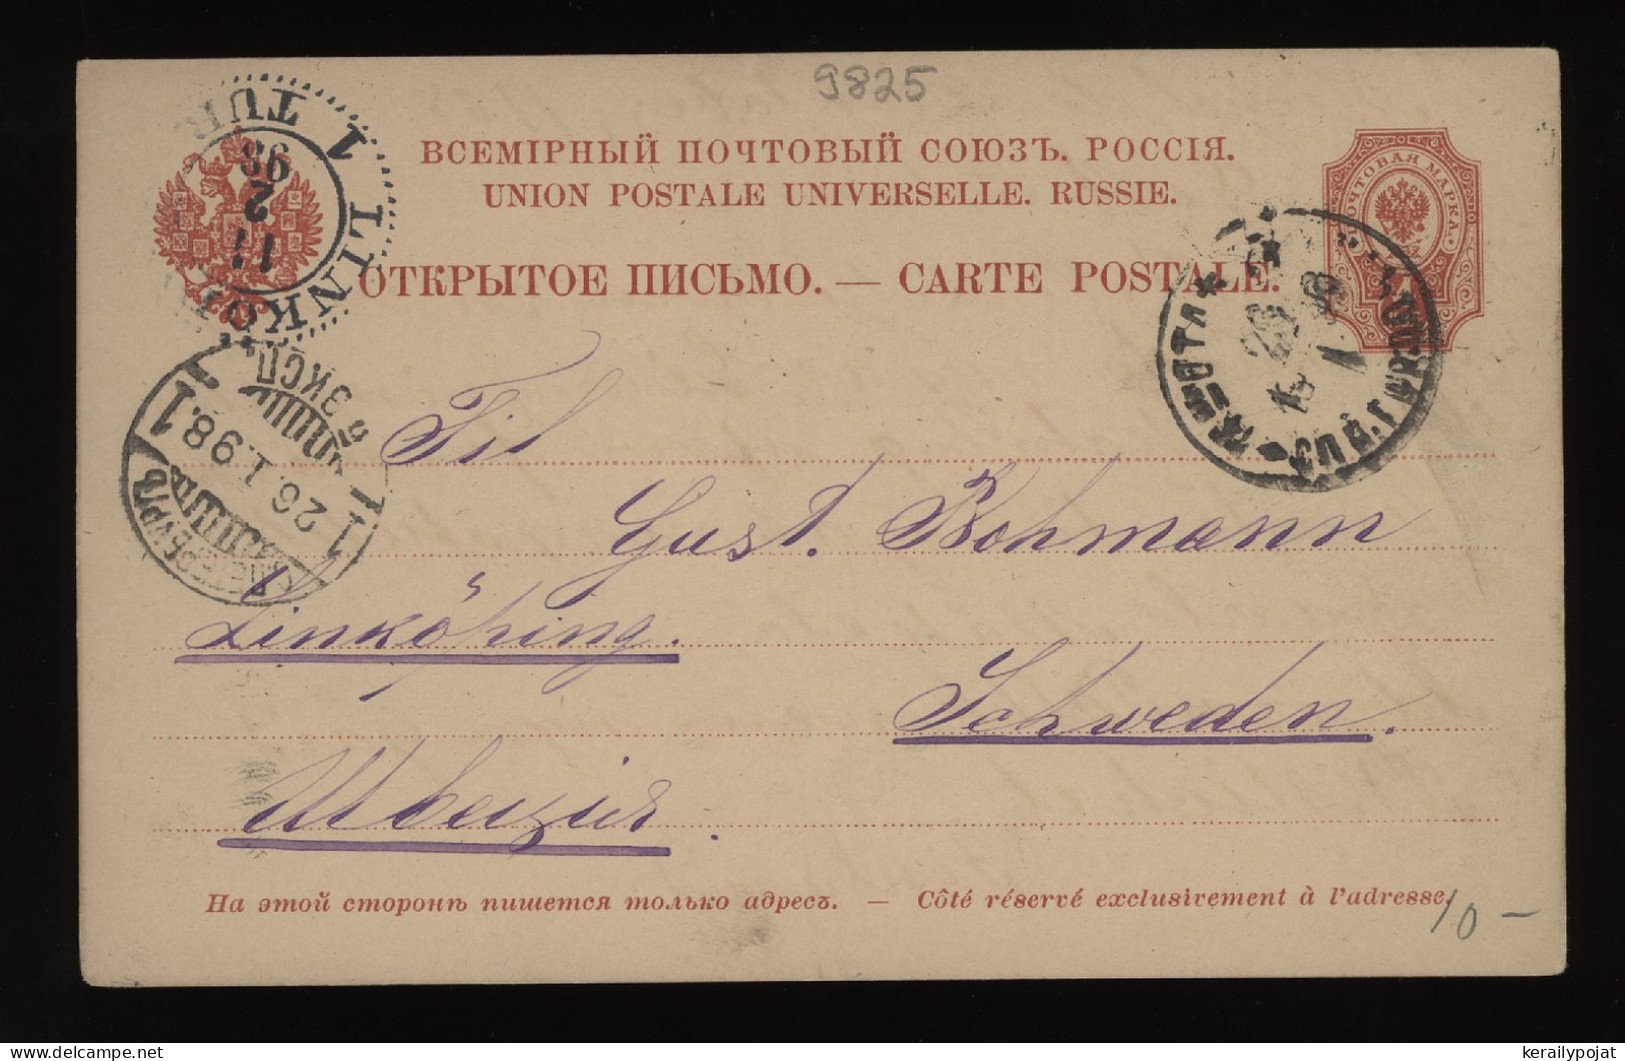 9825
ВСЕМІРНЫЙ ПОЧТОВЫЙ СОЮЗЪ. РОССІЯ.
UNION POSTALE UNIVERSELLE. RUSSIE.
ОТКРЫТОЕ ПИСЬМО. — CARTE POSTALE.
ПОЧТОВАЯ МАРКА
LINKÖ
TUR
1
11
2
98
ЭКСП.
26.1.98.1
1
Til
Gust. Bohmann
Linköping.
Schweden.
На этой сторонѣ пишется только адресъ. — Côté réservé exclusivement à l'adresse.
10 –
kerailypojat
www.delcampe.net